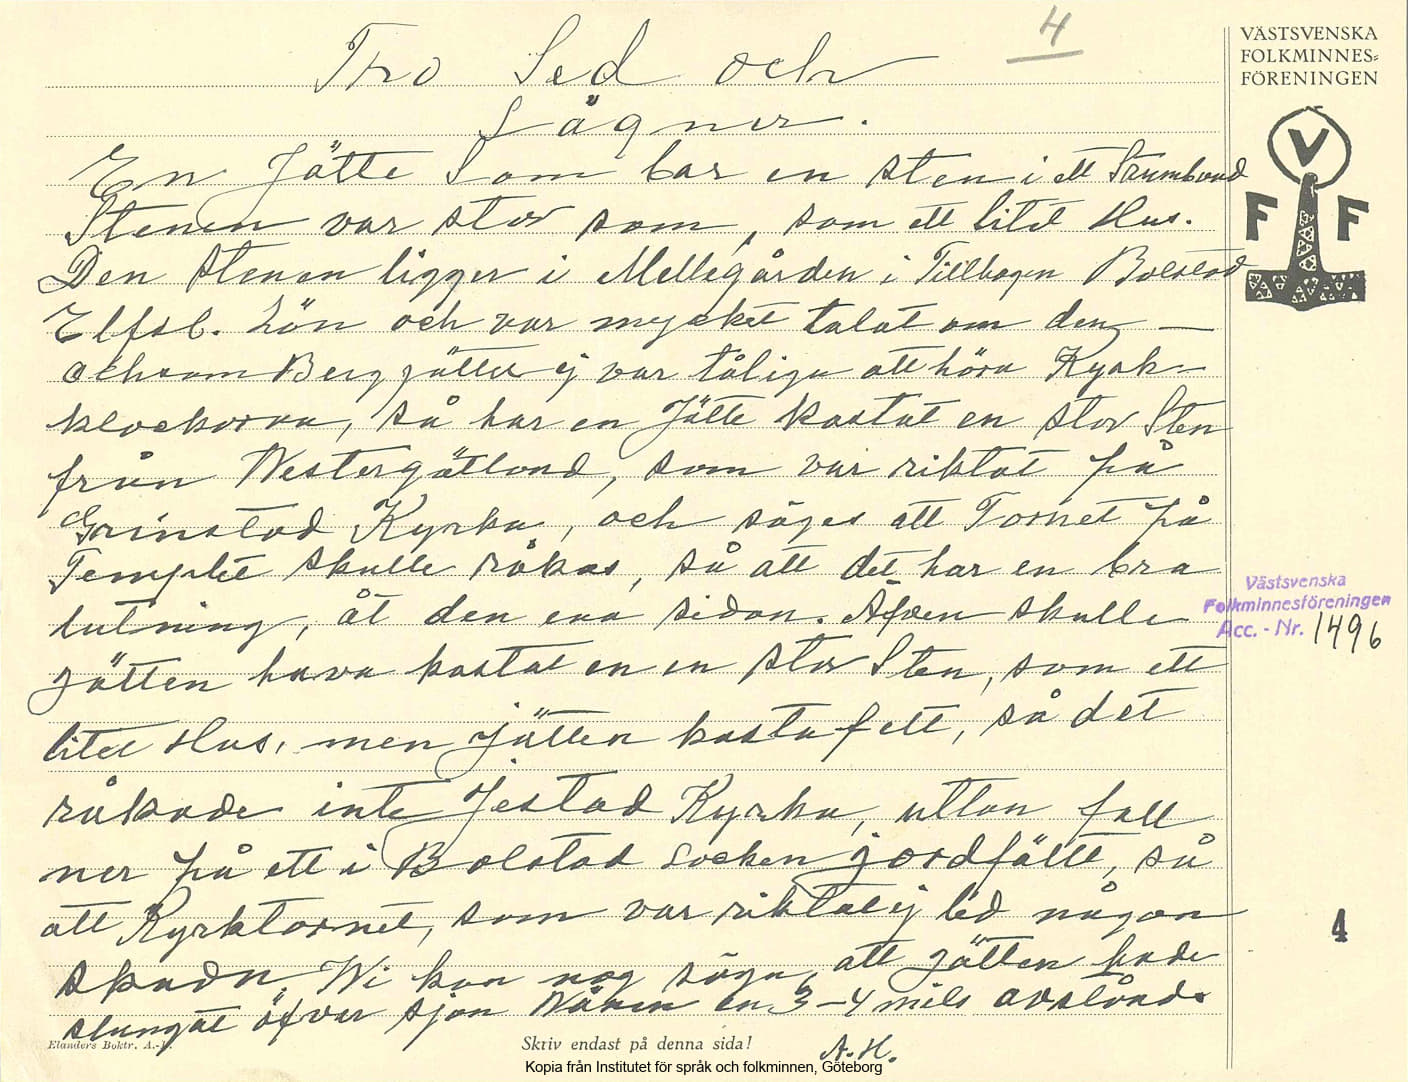 4
VÄSTSVENSKA
FOLKMINNES=
FÖRENINGEN
V
F F
Tro Sed och
Sägner.
En Jätte Som bar en sten i ett Strumband
Stenen var stor som, som ett litet Hus.
Den stenen ligger i Mellegården i Tillhagen Bolstad
Elfsb. Län och var mycket talat om den —
ehsom Bergjätter ej var tåliga att höra Kyrk-
klockorna, så har en Jätte kastat en stor Sten
från Westergötland, som var riktat på
Grinstad Kyrka, och säges att Tornet på
Templet skulle råkas, så att det har en bra
lutning, åt den ena sidan. Äfven skulle
jätten hava kastat en en stor Sten, som ett
litet Hus, men jätten kasta fett, så det
råkade inte Jestad Kyrka, uttan fall
ner på ett i Bolstad Socken jordfält, så
att Kyrktornet, som var riktat ej led någon
skada. Wi kan nog säga, att jätten hade
slungat öfver sjön Wänern en 3-4 mils avstånd.
A.H.
Västsvenska
Folkminnesföreningen
Acc. - Nr. 1496
4
Elanders Boktr. A.-B.
Skriv endast på denna sida!
Kopia från Institutet för språk och folkminnen, Göteborg